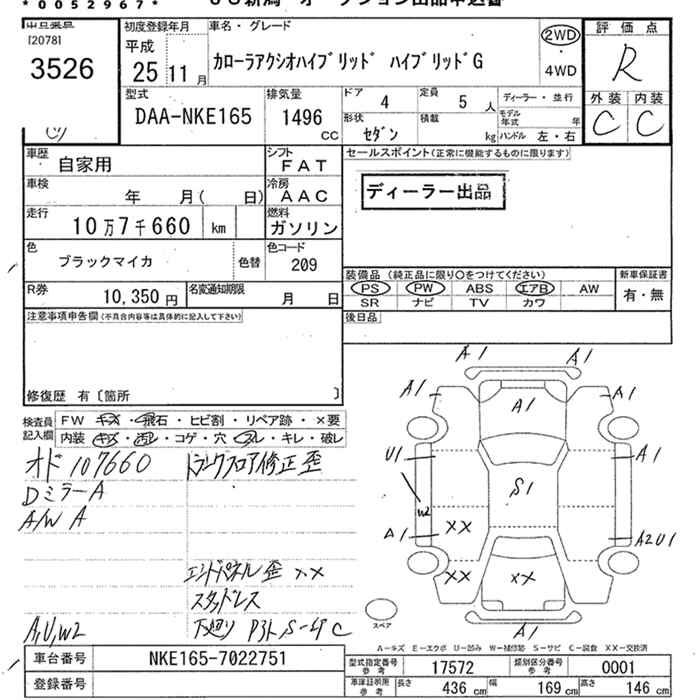 *0052967*
[2078]
3526
初度登録年月
平成
25 11 月
車名・グレード
カローラアクシオハイブリッド ハイブリッドG
2WD
・
4WD
評価点
R
外装 内装
C C
型式
DAA-NKE165
排気量
1496
CC
ドア
4
定員
5 人
形状
セダン
積載
kg
ディーラー・並行
モデル年式
年
ハンドル 左・右
車歴
自家用
シフト
FAT
車検
年 月( 日)
冷房
AAC
走行
10万7千660 km
燃料
ガソリン
色
ブラックマイカ
色替
色コード
209
R券
10,350 円
名変通知期限
月 日
セールスポイント(正常に機能するものに限ります)
ディーラー出品
装備品 (純正品に限り○をつけてください)
新車保証書
PS PW ABS エアB AW
SR ナビ TV カワ
有・無
後日品
注意事項申告欄(不具合内容等は具体的に記入して下さい)
修復歴 有〔箇所 〕
検査員
記入欄
FW キズ・飛石・ヒビ割・リペア跡・×要
内装 キズ・汚レ・コゲ・穴・スレ・キレ・破レ
オド 107660
トランクフロア修正歪
Dミラー A
A/W A
エンドパネル歪 XX
スタッドレス
A,U,W2
下廻り
C
A1 A1
A1 A1 A1
U1 A1
S1
W2
A1 XX A2U1
XX XX
スペア
A-キズ E-エクボ U-凹み W-補修跡 S-サビ C-腐食 XX-交換済
車台番号
NKE165-7022751
登録番号
型式指定番号
参考
17572
類別区分番号
参考
0001
参考
長さ
436 cm
幅
169 cm
高さ
146 cm